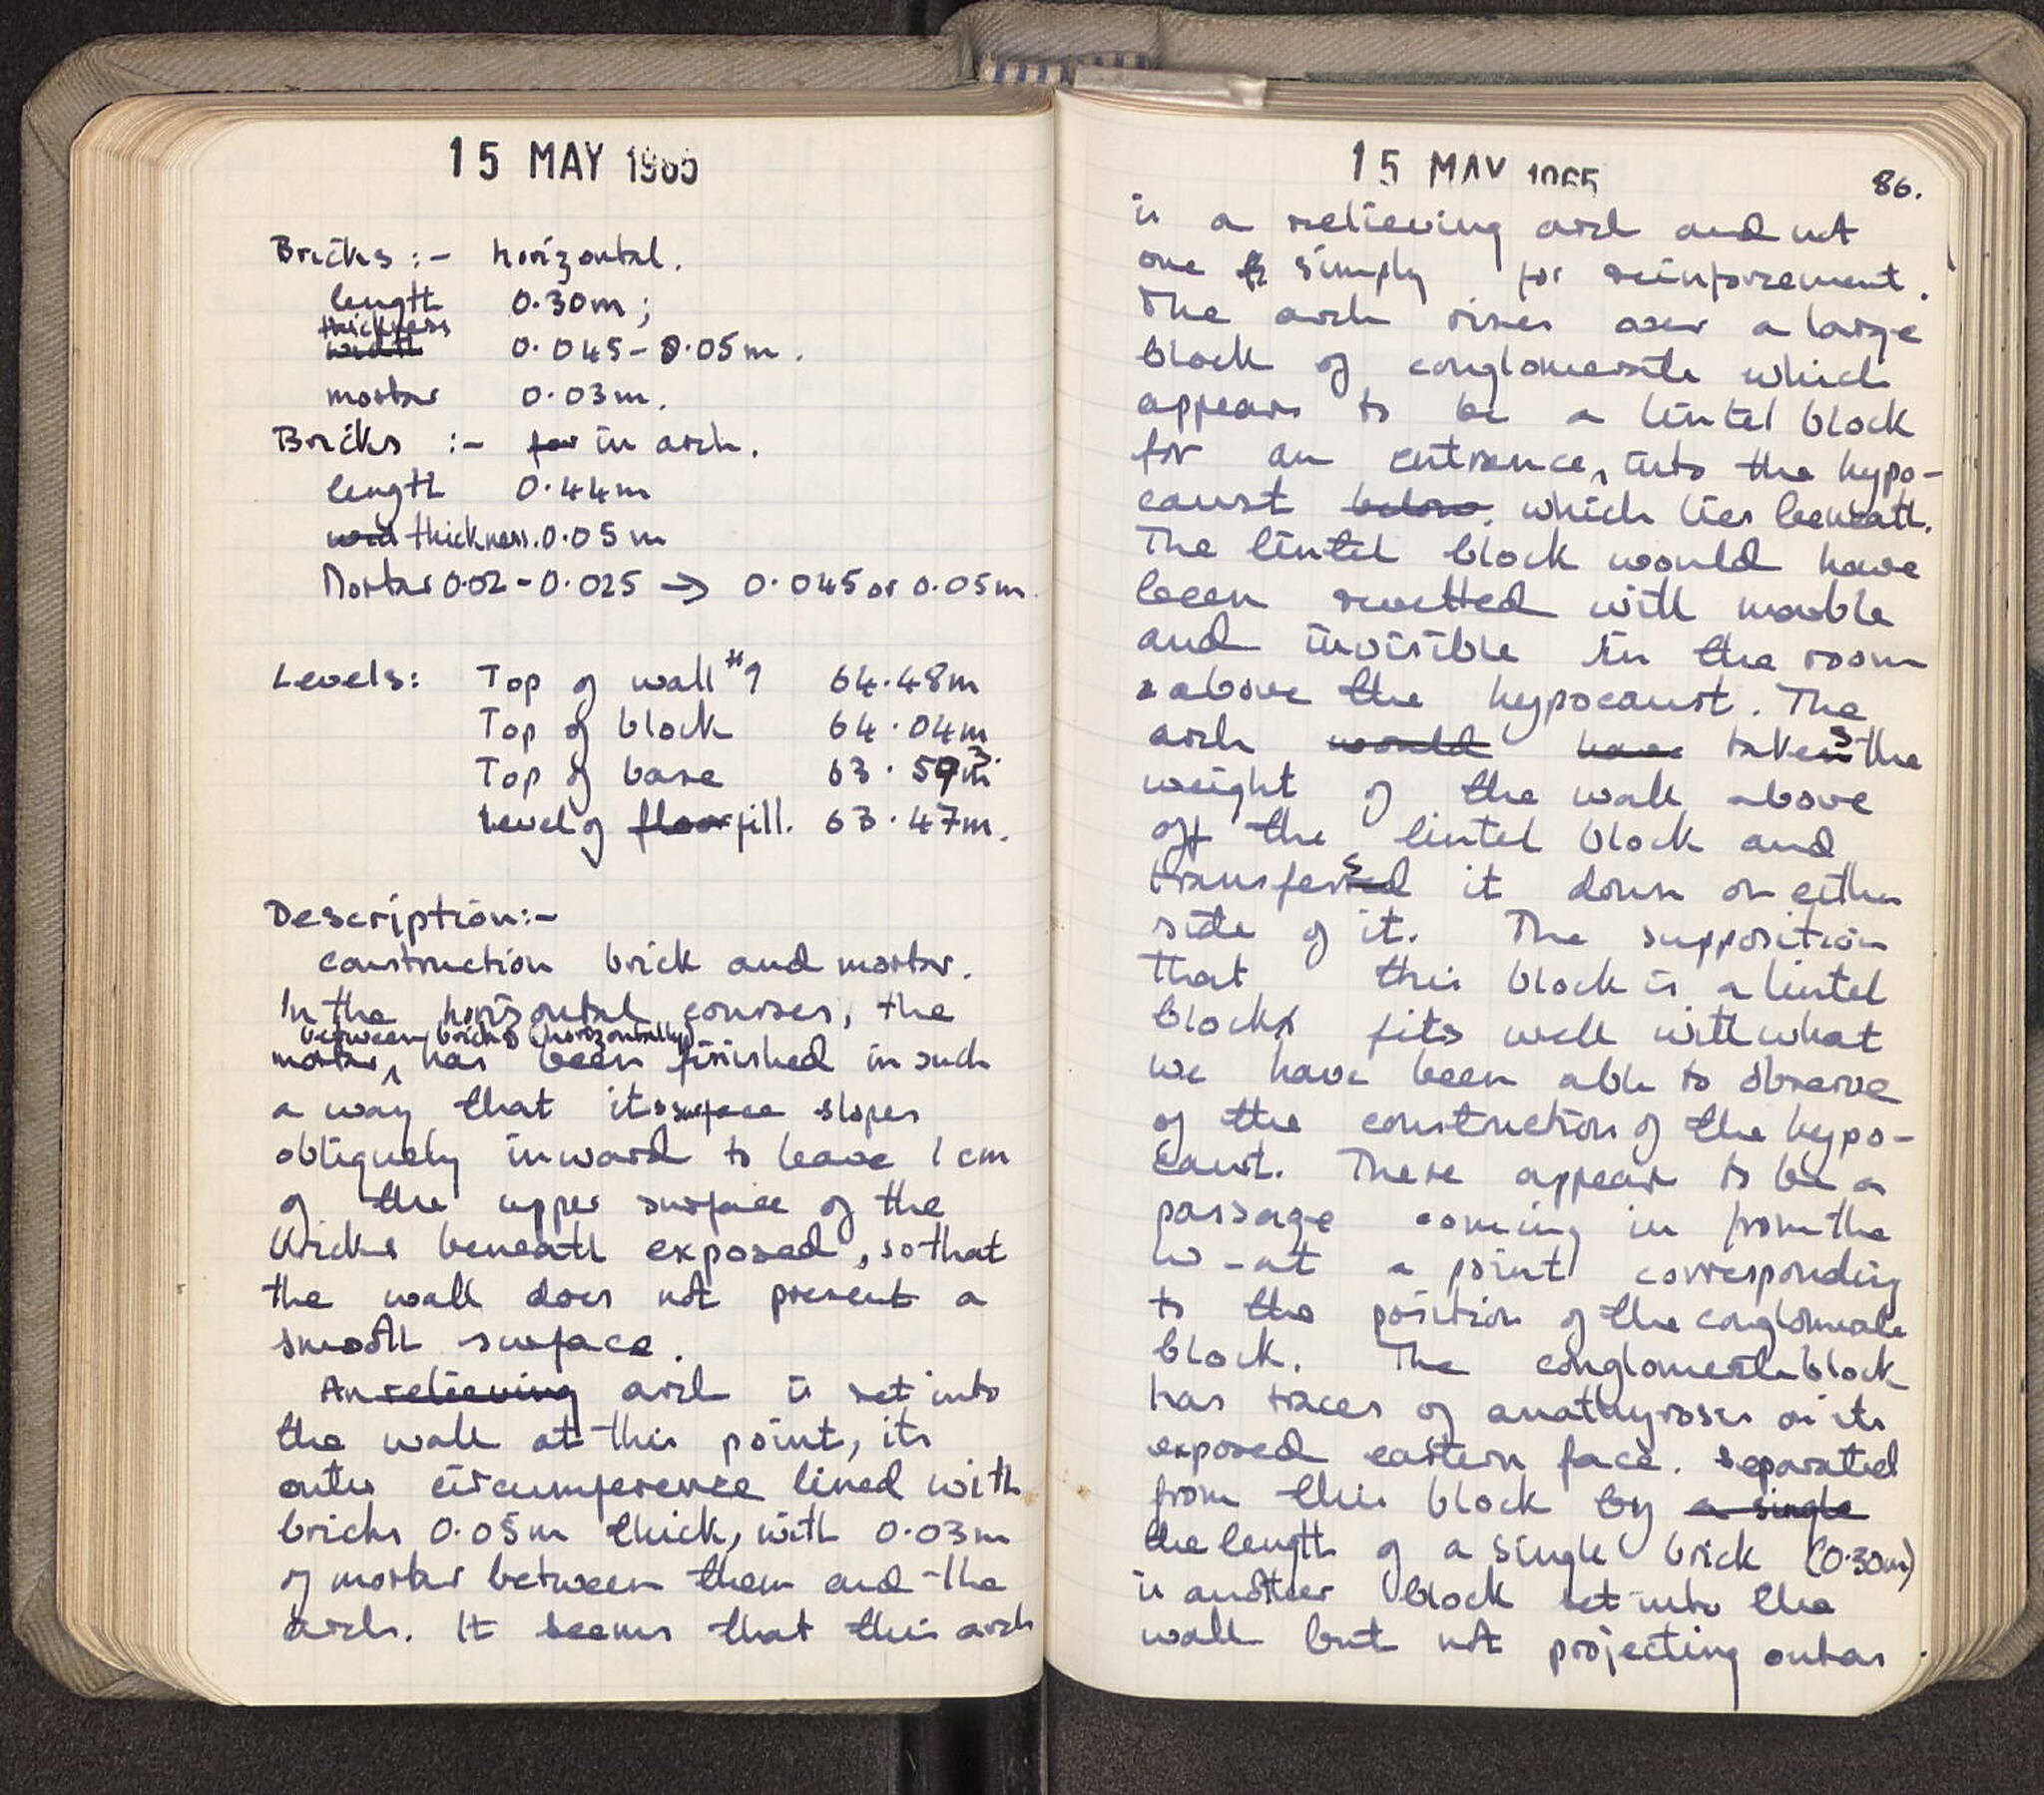 15 MAY 1965
Bricks :- horizontal.
length 0.30m;
thickness
width 0.045-0.05m.
mortar 0.03m.
Bricks :- for in arch.
length 0.44m
wid thickness. 0.05m
Mortar 0.02-0.025 → 0.045 or 0.05m.
Levels: Top of wall #9 64.48m
Top of block 64.04m
Top of base 63.59m
Level of floor fill. 63.47m.
Description:-
construction brick and mortar.
In the horizontal courses, the
between bricks (horizontally)
mortar, has been finished in such
a way that its surface slopes
obliquely inward to leave 1cm
of the upper surface of the
bricks beneath exposed, so that
the wall does not present a
smooth surface.
An relieving arch is set into
the wall at this point, its
outer circumference lined with
bricks 0.05m thick, with 0.03m
of mortar between them and the
arch. It seems that this arch
15 MAY 1965
86.
is a relieving arch and not
one simply for reinforcement.
The arch rises over a large
block of conglomerate which
appears to be a lintel block
for an entrance, into the hypo-
caust below. which lies beneath.
The lintel block would have
been revetted with marble
and invisible in the room
above the hypocaust. The
arch would have takes the
weight of the wall above
off the lintel block and
transfers it down on either
side of it. The supposition
that this block is a lintel
block fits well with what
we have been able to observe
of the construction of the hypo-
caust. There appear to be a
passage coming in from the
W - at a point corresponding
to the position of the conglomerate
block. The conglomerate block
has traces of anathyrosis on its
exposed eastern face. Separated
from this block by a single
the length of a single brick (0.30m)
is another block set into the
wall but not projecting out as